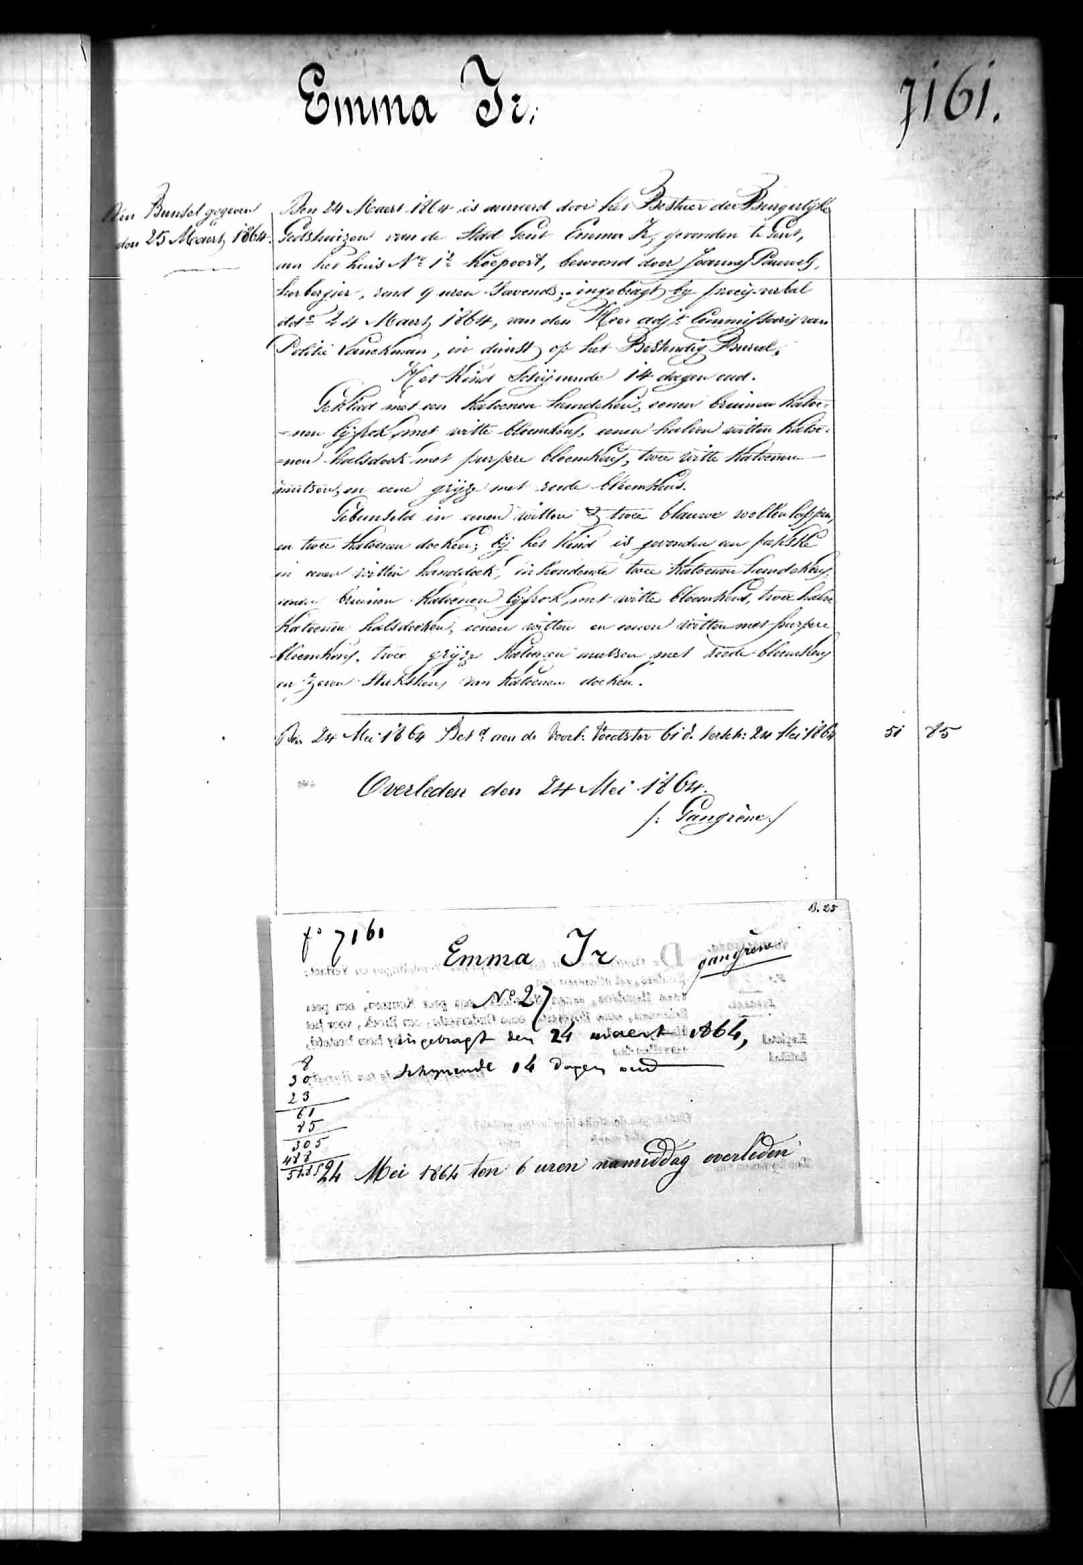 Emma Ir:
7161.
Den Bundel gegeven
den 25 Maert 1864.
Den 24 Maert 1864 is aenveerd door het Bestuer der Burgerlyke
Godshuizen van de Stad Gent Emma Ir, gevonden te Gent,
aen het huis No 12 Koepoort, bewoond door Joannes Pauwels,
herbergier, rond 9 uren s'avonds; ingebragt by procès-verbal
ddo 24 Maert 1864, van den Heer adjt Commissaris van
Politie, in dienst op het Bestendig Bureel.
Het Kind Schynende 14 dagen oud.
Gekleed met een Katoenen hemdeken, eenen bruinen Katoe-
-nen lyfrok, met witte bloemkens, eenen halven witten Katoe-
-nen halsdoek met purpere bloemkens, twee witte Katoenen
mutsen, en eene gryze met roode bloemkens.
Gebunseld in eenen witten & twee blauwe wollen lappen,
en twee Katoenen doeken; by het Kind is gevonden een pakske
in eenen witten handdoek, inhoudende twee Katoenen hemdekens,
eenen bruinen Katoenen lyfrok, met witte bloemkens, twee halve
Katoenen halsdoeken, eenen witten en eenen witten met purpere
bloemkens, twee gryze Katoenen mutsen met roode bloemkens
en zeven stukskens van Katoenen doeken.
Den 24 Mei 1864 Betd aen de Voedster 61 d. 24 Mei 1864 51 85
Overleden den 24 Mei 1864.
/: Gangrène /
B. 25
fo 7161
Emma Ir
gangrène
No 27
ingebragt den 24 maert 1864,
schynende 14 dagen oud
8
30
23
61
85
305
488
5185
24 Mei 1864 ten 6 uren namiddag overleden